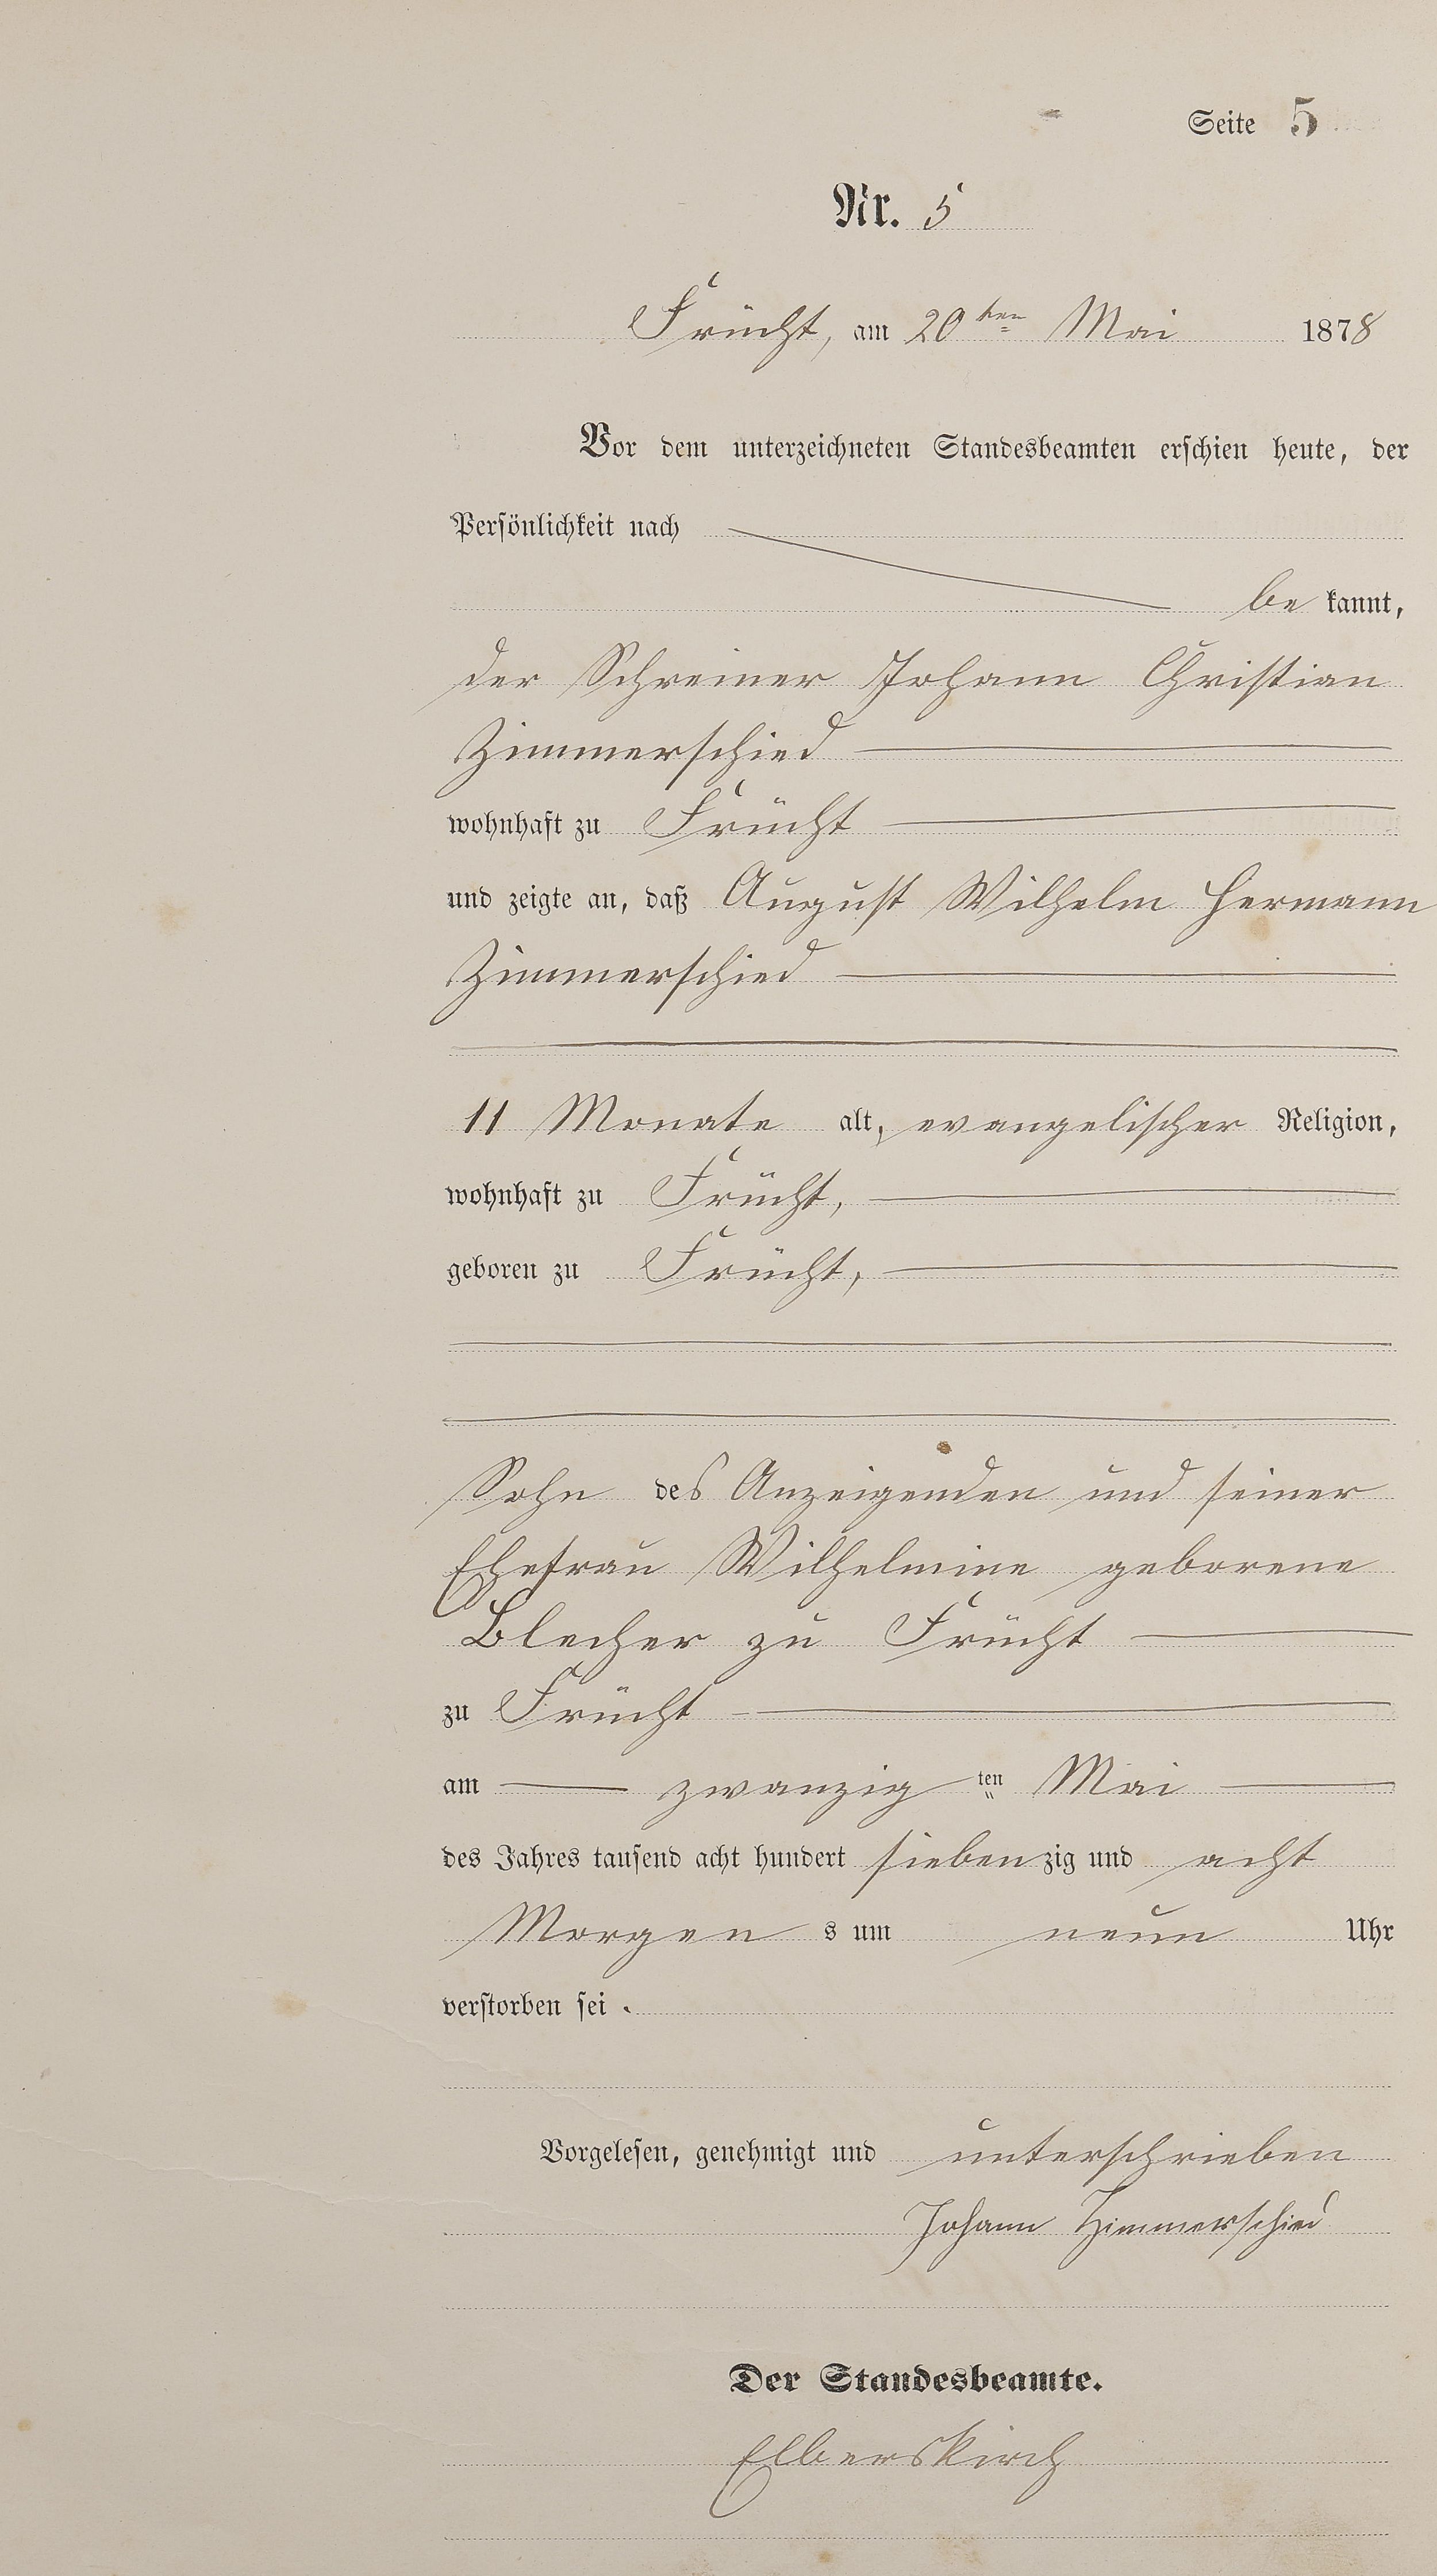 Seite 5
Nr. 5
Frücht, am 20ten Mai 1878
Vor dem unterzeichneten Standesbeamten erschien heute, der
Persönlichkeit nach
be kannt,
der Schreiner Johann Christian
Zimmerschied
wohnhaft zu Frücht
und zeigte an, daß August Wilhelm Hermann
Zimmerschied
11 Monate alt, evangelischer Religion,
wohnhaft zu Frücht,
geboren zu Frücht,
Sohn des Anzeigenden und seiner
Ehefrau Wilhelmine geborene
Blecher zu Frücht
zu Frücht
am zwanzig ten Mai
des Jahres tausend acht hundert siebenzig und acht
Morgen s um neun Uhr
verstorben sei.
Vorgelesen, genehmigt und unterschrieben
Johann Zimmerschied
Der Standesbeamte.
Elberskirch